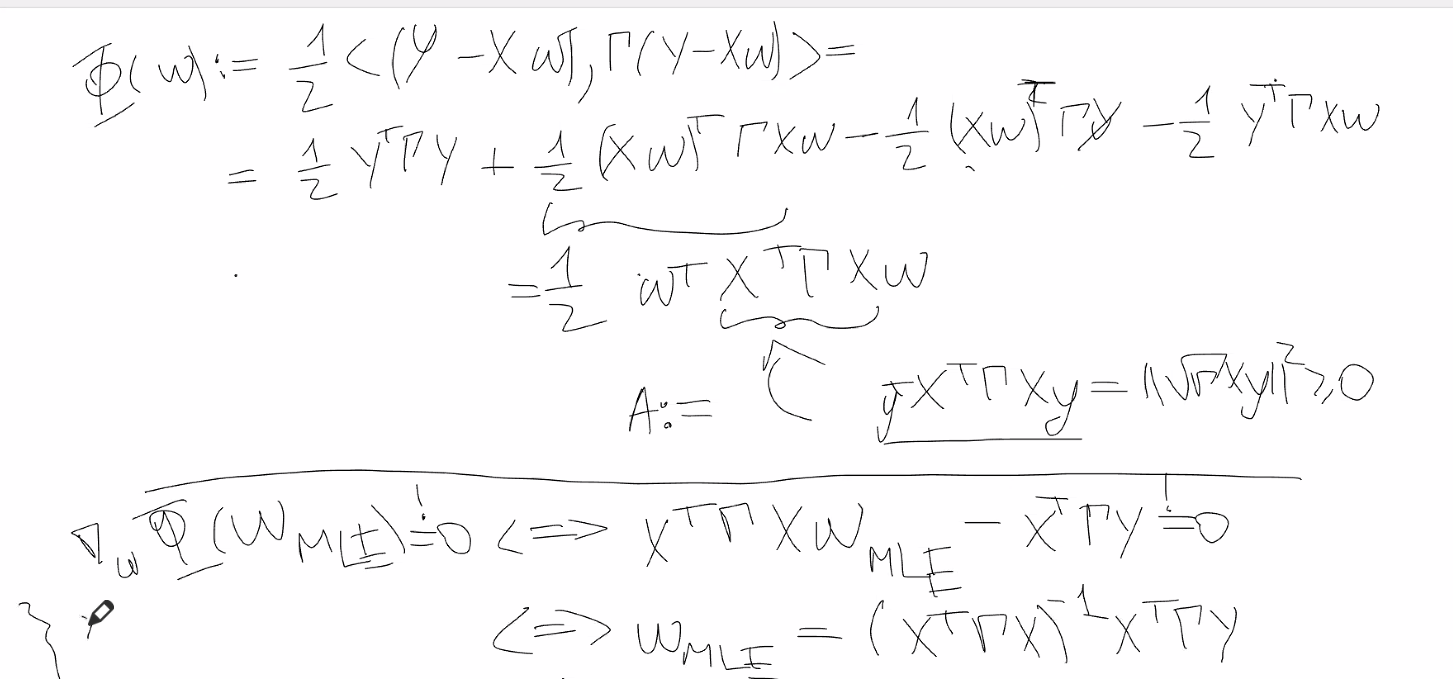 Φ(w) := 1/2 <(Y - Xw), Γ(Y - Xw)> =
= 1/2 Yᵀ Γ Y + 1/2 (Xw)ᵀ Γ X w - 1/2 (Xw)ᵀ Γ Y - 1/2 Yᵀ Γ X w
= 1/2 wᵀ Xᵀ Γ X w
A := yᵀ Xᵀ Γ X y = ||√Γ X y||² ≥ 0
∇_w Φ(w_MLE) =! 0 <=> Xᵀ Γ X w_MLE - Xᵀ Γ Y =! 0
<=> w_MLE = (Xᵀ Γ X)⁻¹ Xᵀ Γ Y